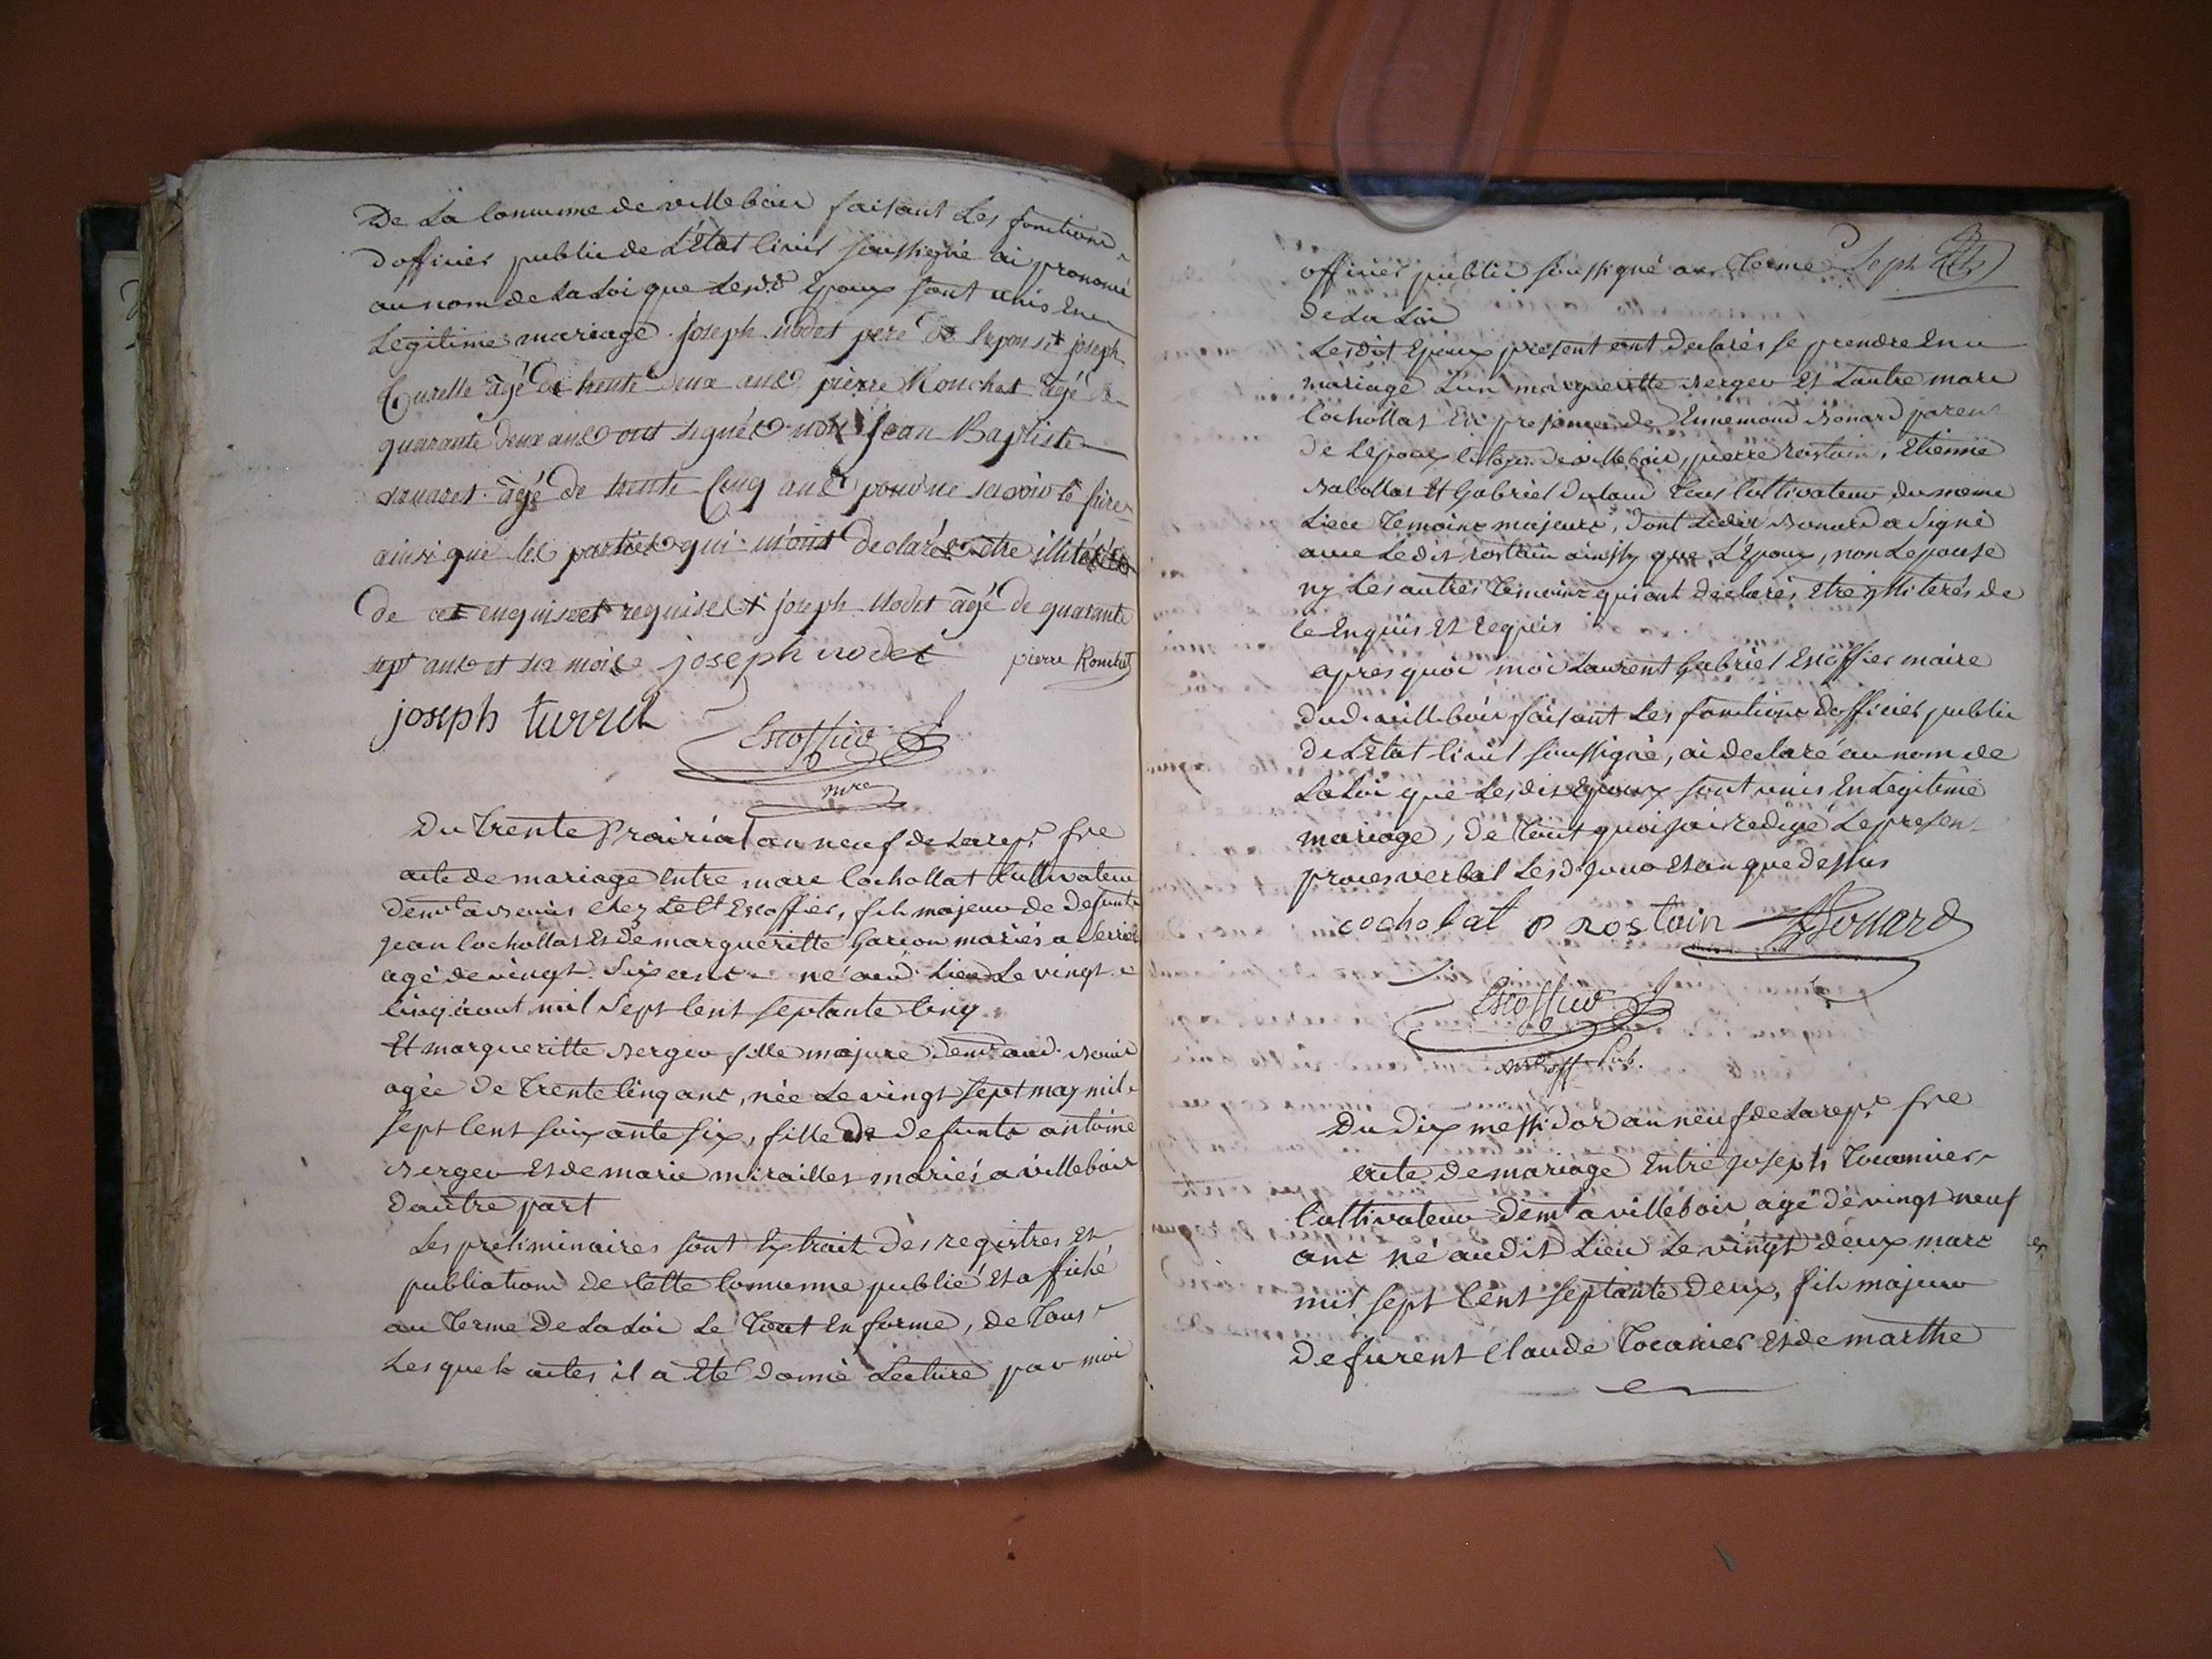 De La Commune de villebois faisant Les fonctions
dofficier public de L'Etat Civil soussigné ai prononcé
au nom de La Loi que Lesd. Epoux sont unis En
Legitime mariage. joseph nodet pere de lepouse joseph
Turelle âgé de trente deux ans pierre Rouchet âgé de
quarante deux ans ont signés non jean Baptiste
âgé de trente cinq ans pour ne savoir le faire
ainsi que les parties qui m'ont declarés etre illiterés
de ce enquises et requises joseph nodet âgé de quarante
sept ans et six mois joseph nodet pierre Rouchet
joseph turrel
Escoffier
mre
Du trente Prairial an neuf de La rep.e fse
acte de mariage Entre marc Cochollat Cultivateur
demt a chez Le Ct Escoffier, fils majeur de defunt
jean Cochollat Et de margueritte mariés a
agé de vingt six ans né aud. Lieu Le vingt
Cinq aout mil Sept Cent Septante Cinq
Et margueritte Berger fille majure demt aud.
agée de Trente Cinq ans, née Le vingt sept may mil
sept Cent soixante six, fille de defunts antoine
Berger Et de marie mirailles mariés a villebois
d'autre part
Les preliminaires sont Extrait des registres Et
publications de Cette Commune publié Et affiché
au Terme De La Loi Le Tout En forme, de Tous
Les quels actes il a Eté donné Lecture par moi
officier public soussigné au Terme Sept
de La Loi
Lesdit Epoux present ont declarés se prendre En
mariage L'un margueritte Berger Et L'autre marc
Cochollat En presence de Ennemond Bonard parent
de L'epoux de villebois, pierre rostain, Etienne
Et Gabriel Tous Cultivateur du meme
Lieu Temoins majeurs, dont Ledit Bonard a Signé
avec Ledit rostain ainssy que L'Epoux, non Lepouse
ny Les autres Temoins qui ont declarés Etre illiterés de
ce Enquis Et requis
apres quoi moi Laurent Gabriel Escoffier maire
dud. villebois faisant Les fonctions dofficier public
de L'Etat Civil soussigné, ai declaré au nom de
La Loi que Lesdis Epoux sont unis En Legitime
mariage, de Tout quoi j'ai redigé Le presen
proces verbal Lesd. jour Et an que dessus
cochobat P Rostain Bonard
Escoffier
off Pub.
Du dix messidor an neuf de La rep.e fse
acte de mariage Entre joseph Tocanier
Cultivateur demt a villebois agé de vingt neuf
ans né audit Lieu Le vingt deux mars
mil sept Cent Septante Deux, fils majeur
de furent Claude Tocanier Et de marthe